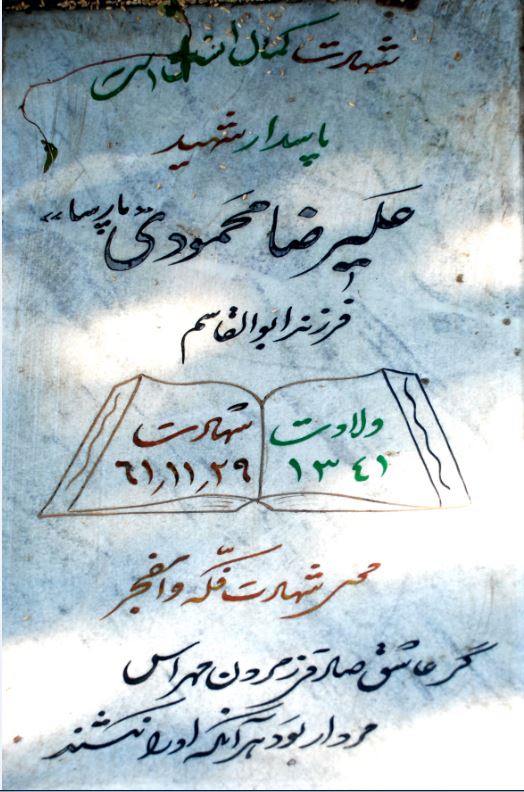 شهادت کمال انسان است
پاسدار شهید
علیرضا محمودی «پارسا»
فرزند ابوالقاسم
ولادت
۱۳٤۱
شهادت
٦۱٫۱۱٫۲۹
محل شهادت فکّه والفجر
گر عاشق صادقی ز مردن مهراس
مردار بود هر آنکه او را نکشند